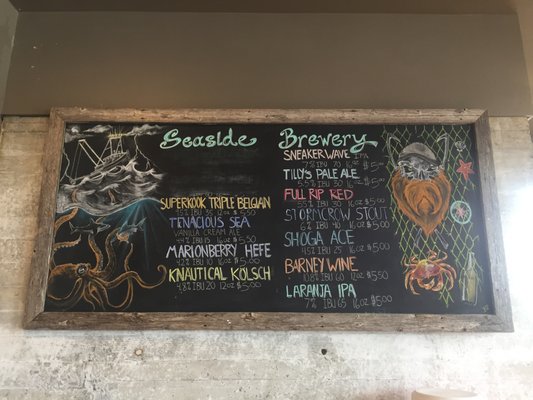 Seaside Brewery
SUPERKOOK TRIPLE BELGIAN
IBU 35 12oz $5.50
TENACIOUS SEA
VANILLA CREAM ALE
4.4% IBU 15 16oz $5.00
MARIONBERRY HEFE
4.2% IBU 10 16oz $5.00
KNAUTICAL KÖLSCH
4.8% IBU 20 12oz $5.00
SNEAKERWAVE IPA
7% IBU 70 16oz $5.00
TILLY'S PALE ALE
5.5% IBU 30 16oz $5.00
FULL RIP RED
5.5% IBU 30 16oz $5.00
STORMCROW STOUT
6% IBU 40 16oz $5.00
SHOGA ACE
IBU 25 16oz $5.00
BARNEY WINE
10.8% IBU 60 $5.50
LARANJA IPA
7% IBU 65 16oz $5.00